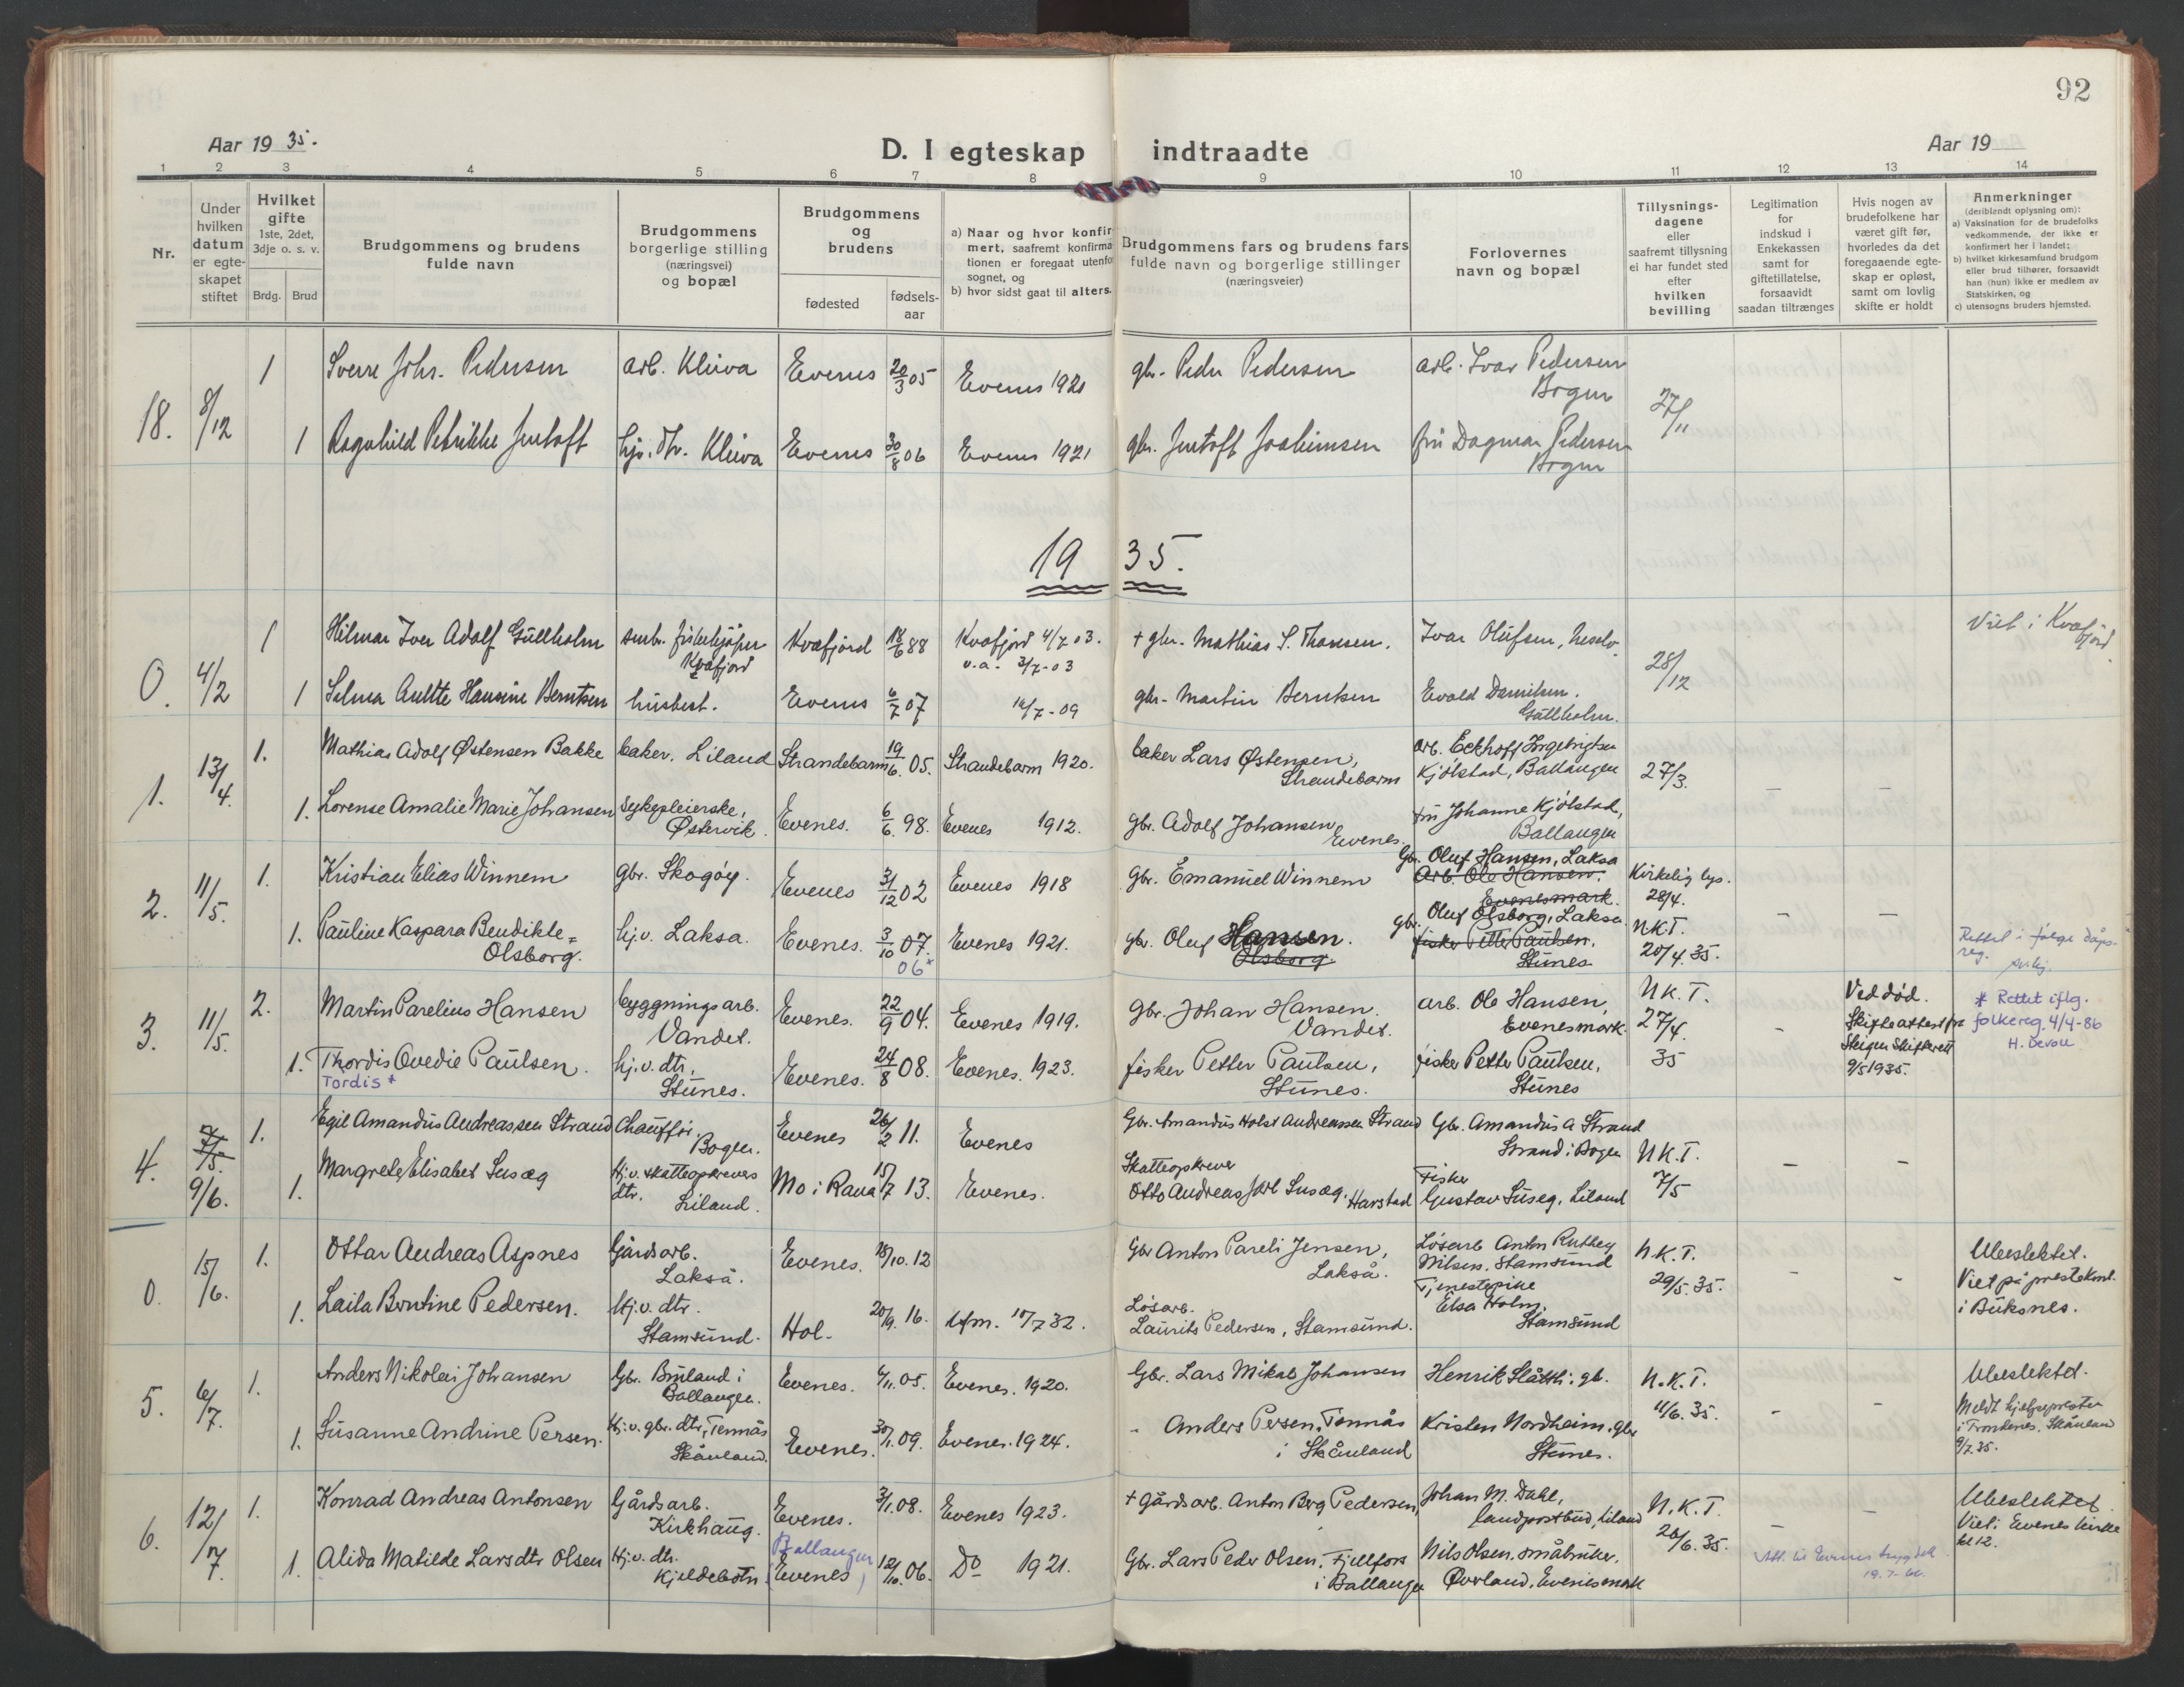 92
Aar 19 35.
D. I egteskap indtraadte
Aar 19
1 2 3 4 5 6 7 8 9 10 11 12 13 14
Nr.
Under hvilken datum er egteskapet stiftet
Hvilket gifte 1ste, 2det, 3dje o. s. v.
Brdg. Brud
Brudgommens og brudens fulde navn
Brudgommens borgerlige stilling (næringsvei) og bopæl
Brudgommens og brudens
fødested
fødselsaar
a) Naar og hvor konfirmert, saafremt konfirmationen er foregaat utenfor sognet, og
b) hvor sidst gaat til alters.
Brudgommens fars og brudens fars fulde navn og borgerlige stillinger (næringsveier)
Forlovernes navn og bopæl
Tillysningsdagene eller saafremt tillysning ei har fundet sted efter hvilken bevilling
Legitimation for indskud i Enkekassen samt for giftetillatelse, forsaavidt saadan tiltrænges
Hvis nogen av brudefolkene har været gift før, hvorledes da det foregaaende egteskap er opløst, samt om lovlig skifte er holdt
Anmerkninger (deriblandt oplysning om):
a) Vaksination for de brudefolks vedkommende, der ikke er konfirmert her i landet;
b) hvilket kirkesamfund brudgom eller brud tilhører, forsaavidt han (hun) ikke er medlem av Statskirken, og
c) utensogns bruders hjemsted.
18. 8/12 1 Sverre Johs. Pedersen arb. Kleiva Evenes 20/3 05 Evenes 1921 gbr. Peder Pedersen arb. Ivar Pedersen Bogen 27/11
1 Ragnhild Petrikke Jentoft hjv. dtr. Kleiva Evenes 30/8 06 Evenes 1921 gbr. Jentoft Joakimsen fru Dagmar Pedersen Bogen
19 35.
0. 4/2 1 Hilmar Iver Adolf Gullholm smbr. fiskekjøper Kvæfjord Kvæfjord 18/6 88 Kvæfjord 4/7 03. v.a. 3/7-03 + gbr. Mathias S. Thomsen. Ivar Olufsen, 28/12 Viet i Kvæfjord.
1 Selma Hansine Berntsen husbest. Evenes 6/7 07 gbr. Martin Berntsen Evald Danielsen. Gullholm.
1. 13/4. 1. Mathias Adolf Østensen Bakke baker, Liland Strandebarm 19/6. 05. Strandebarm 1920. baker Lars Østensen, Strandebarm arb. Eckhoff Ingebrigtsen Kjölstad, Ballangen 27/3. - -
1. Lorense Amalie Marie Johansen sykepleierske, Østervik. Evenes. 6/6. 98. Evenes 1912. gbr. Adolf Johansen, Evenes. fru Johanne Kjölstad, Ballangen
2. 11/5. 1. Kristian Elias Winnem gbr. Skogøy. Evenes 31/12 02 Evenes 1918 Gbr. Emanuel Winnem Gbr. Oluf Hansen, Laksa Arb. Ole Hansen. Evenesmark. Kirkelig lys. 28/4. - -
1. Pauline Kaspara Bendikte= Olsborg. hj.v. Laksa. Evenes. 3/10 07. 06* Evenes 1921. gbr. Oluf Hansen. Olsborg gbr. Oluf Olsborg, Laksa. fisker Petter Paulsen, Stunes N.K.T. 20/4. 35. Rettet i følge dåpsreg.
3. 11/5. 2. Martin Parelius Hansen bygningsarb. Vandet. Evenes. 22/9 04. Evenes 1919. Gbr. Johan Hansen. Vandet. arb. Ole Hansen, Evenesmark. N.K.T. 27/4. 35 - Ved död. Skifteattest fra Steigen Skifterett 9/5 1935. * Rettet iflg. folkereg. 4/4-86 H. Devold
1. Thordis Ovedie Paulsen. Tordis * hj.v. dtr. Stunes. Evenes. 24/8 08. Evenes. 1923. fisker Petter Paulsen, Stunes. fisker Petter Paulsen, Stunes
4. 9/6. 1. Egil Amandus Andreassen Strand Chauffør. Bogen. Evenes 26/2 11. Evenes Gbr. Amandus Holst Andreassen Strand Gbr. Amandus A Strand Strand i Bogen N.K.T. 7/5 - -
1. Margrete Elisabet Susæg Hj.v. skatteopkrevers dtr. Liland. Mo i Rana 15/7 13. Evenes. Skatteopkrever Otto Andreas Jarl Susæg, Harstad Fisker Gustav Suseg, Liland
0. 15/6. 1. Ottar Andreas Aspnes Gårdsarb. Lakså. Evenes. 18/10. 12 Gbr Anton Pareli Jensen, Lakså. Løsarb Anton Nilsen. Stamsund N.K.T. 29/5. 35. - - Ubeslektet. Viet på prestekont. i Buksnes.
1. Laila Bentine Pedersen. Hj.v. dtr. Stamsund. Hol. 16. 10/7 32. Løsarb. Laurits Pedersen, Stamsund. Tjenestepike Elsa Holm, Stamsund
5. 6/7. 1. Anders Nikolai Johansen Gbr. Bruland i Ballangen. Evenes. 4/11. 05. Evenes. 1920. Gbr. Lars Mikal Johansen Henrik Slåtth. gb. N.K.T. 4/6. 35. - - Ubeslektet. Meldt hjelpeprester i Trondenes, Skånland 9/7. 35.
1. Susanne Andrine Persen. Hj.v. gbr. dtr, Tennås Skånland. Evenes. 30/1. 09. Evenes. 1924. - Anders Persen, Tennås i Skånland Kristen Nordheim. gbr Stunes.
6. 12/7. 1. Konrad Andreas Antonsen Gårdsarb. Kirkhaug. Evenes. 3/1. 08. Evenes 1923. + Gårdsarb. Anton Berg Pedersen, Johan M. Dahl, landpostbud, Liland N.K.T. 26/6. 35. - - Ubeslektet. Viet i Evenes kirke kl 12.
1. Alida Matilde Larsdtr Olsen Hj.v. dtr. Kjeldebotn Ballangen (Evenes) 12/10. 06. Do 1921. Gbr. Lars Peder Olsen, Fjellfors i Ballangen Nils Olsen. småbruker. Øverland, Evenesmark Att. til Evenes trygdek. 19.7-66.